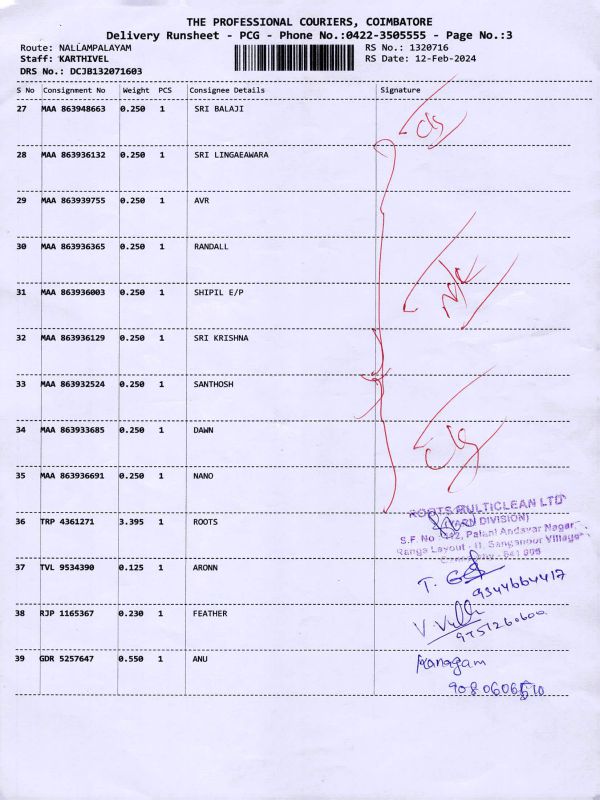 THE PROFESSIONAL COURIERS, COIMBATORE
Delivery Runsheet - PCG - Phone No.:0422-3505555 - Page No.:3
Route: NALLAMPALAYAM RS No.: 1320716
Staff: KARTHIVEL RS Date: 12-Feb-2024
DRS No.: DCJB132071603
S No Consignment No Weight PCS Consignee Details Signature
27 MAA 863948663 0.250 1 SRI BALAJI
28 MAA 863936132 0.250 1 SRI LINGAEAWARA
29 MAA 863939755 0.250 1 AVR
30 MAA 863936365 0.250 1 RANDALL
31 MAA 863936003 0.250 1 SHIPIL E/P
32 MAA 863936129 0.250 1 SRI KRISHNA
33 MAA 863932524 0.250 1 SANTHOSH
34 MAA 863933685 0.250 1 DAWN
35 MAA 863936691 0.250 1 NANO
ROOTS MULTICLEAN LTD
36 TRP 4361271 3.395 1 ROOTS (YARN DIVISION)
S.F. No 112, Palani Andavar Nagar,
Ranga Layout - II, Sanganoor Village
37 TVL 9534390 0.125 1 ARONN
9344664417
38 RJP 1165367 0.230 1 FEATHER
9751260600
39 GDR 5257647 0.550 1 ANU Kanagam
9080606510